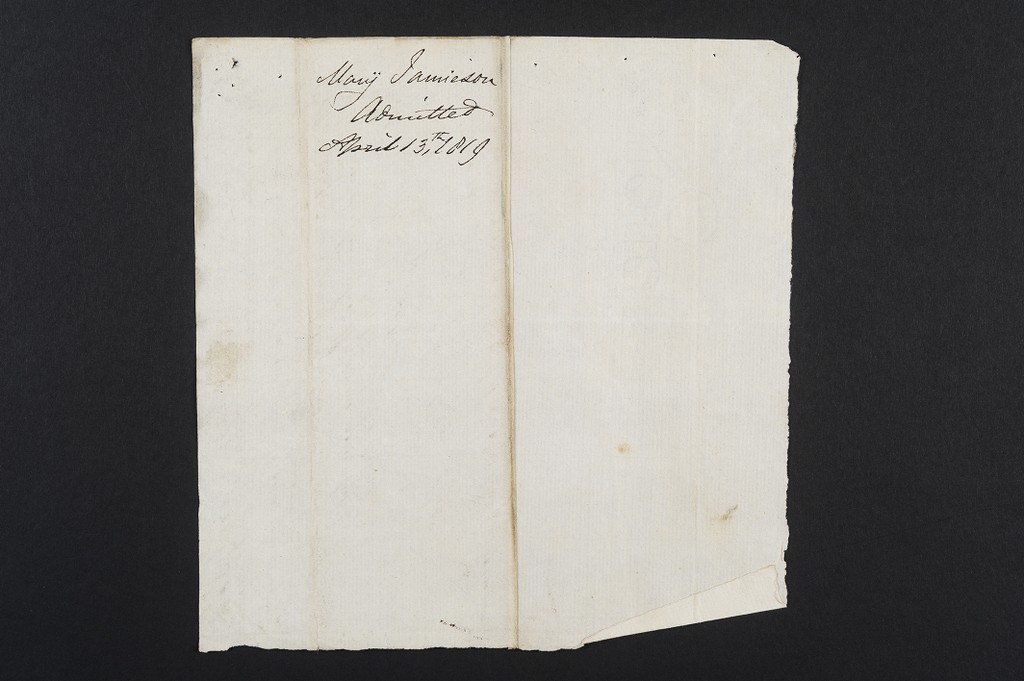 Mary Jamieson
Admitted
April 13,th 1819